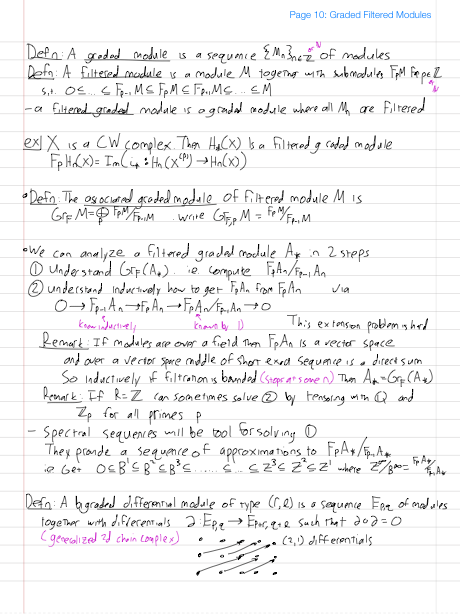 Page 10: Graded Filtered Modules
Defn: A graded module is a sequence {Mn}n∈ℤ or ℕ of modules
Defn: A filtered module is a module M together with submodules FpM for p∈ℤ or ℕ
s.t. 0⊆ ... ⊆ Fp-1M ⊆ FpM ⊆ Fp+1M ⊆ ... ⊆ M
- a filtered graded module is a graded module where all Mn are filtered
ex) X is a CW complex. Then H*(X) is a filtered graded module
FpHn(X) = Im(i* : Hn(X^(p)) → Hn(X))
• Defn: The associated graded module of filtered module M is
GrF M = ⊕p FpM/Fp-1M . write GrF,p M = FpM/Fp-1M
• We can analyze a filtered graded module A* in 2 steps
① Understand GrF(A*). i.e. compute FpAn/Fp-1An
② understand inductively how to get FpAn from Fp-1An via
0 → Fp-1An → FpAn → FpAn/Fp-1An → 0
know inductively known by ①
This extension problem is hard
Remark: If modules are over a field then FpAn is a vector space
and over a vector space middle of short exact sequence is a direct sum
So inductively if filtration is bounded (stops at some n) Then A* = GrF(A*)
Remark: If R=ℤ can sometimes solve ② by tensoring with ℚ and
ℤp for all primes p
- Spectral sequences will be tool for solving ①
They provide a sequence of approximations to FpA*/Fp-1A*
ie Get 0⊆B¹⊆B²⊆B³⊆ ... ... ⊆ Z³⊆Z²⊆Z¹ where Z^∞/B^∞ = FpA*/Fp-1A*
Defn: A bigraded differential module of type (r,q) is a sequence Ep,q of modules
together with differentials ∂: Ep,q → Ep+r,q+q such that ∂∘∂=0
(generalized 2d chain complex)
(2,1) differentials